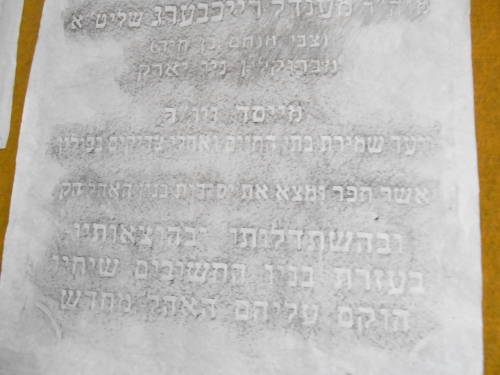 מוה"ר מענדל רייכבערג שליט"א
(צבי מנחם בן חיה)
מברוקלין ניו יארק
מייסד ויו"ר
ועד שמירת בתי החיים ואהלי צדיקים בפולין
אשר חפר ומצא את יסודות בנין האהל הק'
ובהשתדלותו ובהוצאותיו
בעזרת בניו החשובים שיחיו
הוקם עליהם האהל מחדש